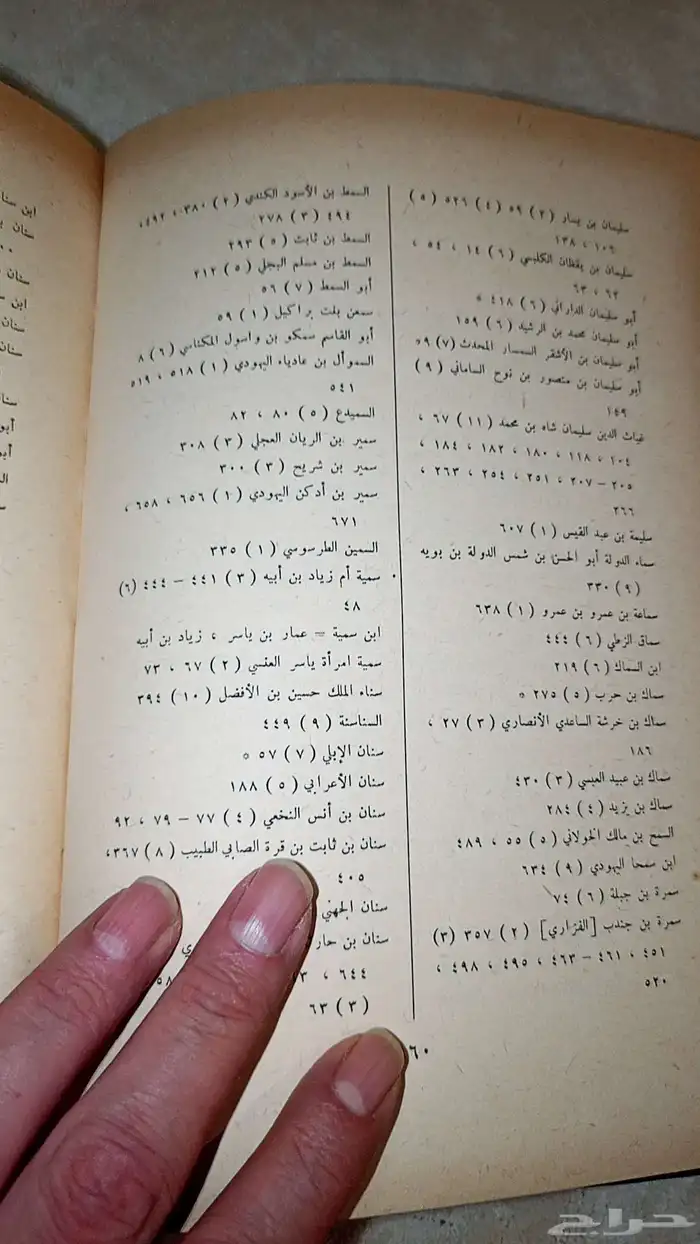 سليمان بن يسار ( ٢ ) ٥٩ ( ٤ ) ٥٢٦ ( ٥ )
١٠٦ ، ١٣٨
سليمان بن يقظان الكلبي ( ٦ ) ١٤ ، ٥٤ ،
٦٢ ، ٦٣
أبو سليمان الداراني ( ٦ ) ٤١٨ *
أبو سليمان محمد بن الرشيد ( ٦ ) ١٥٩
أبو سليمان بن الأشقر السمسار المحدث ( ٧ ) ٩*
أبو سليمان بن منصور بن نوح الساماني ( ٩ )
١٤٩
غياث الدين سليمان شاه بن محمد ( ١١ ) ٦٧ ،
١٠٤ ، ١١٨ ، ١٨٠ ، ١٨٢ ، ١٨٤ ،
٢٠٥ – ٢٠٧ ، ٢٥١ ، ٢٥٤ ، ٢٦٣ ،
٢٦٦
سليمة بن عبد القيس ( ١ ) ٦٠٧
سماء الدولة أبو الحسن بن شمس الدولة بن بويه
( ٩ ) ٣٣٠
سماعة بن عمرو بن عمرو ( ١ ) ٦٣٨
سماق الزطي ( ٦ ) ٤٤٤
ابن السماك ( ٦ ) ٢١٩
سماك بن حرب ( ٥ ) ٢٧٥ *
سماك بن خرشة الساعدي الأنصاري ( ٣ ) ٢٧ ،
١٨٦
سماك بن عبيد العبسي ( ٣ ) ٤٣٠
سماك بن يزيد ( ٤ ) ٢٨٤
السمح بن مالك الخولاني ( ٥ ) ٥٥ ، ٤٨٩
ابن سمحا اليهودي ( ٩ ) ٦٣٤
سمرة بن جبلة ( ٦ ) ٧٤
سمرة بن جندب [الفزاري] ( ٢ ) ٣٥٧ (٣)
٤٥١ ، ٤٦١ – ٤٦٣ ، ٤٩٥ ، ٤٩٨ ،
٥٢٠
السمط بن الأسود الكندي ( ٢ ) ٣٨٠ ، ٤٩٢ ،
٤٩٤ ( ٣ ) ٢٧٨
السمط بن ثابت ( ٥ ) ٢٩٣
السمط بن مسلم البجلي ( ٥ ) ٢١٢
أبو السمط ( ٧ ) ٥٦
سمعن بلت براكيل ( ١ ) ٥٩
أبو القاسم سمكو بن واسول المكناسي ( ٦ ) ٨
السموأل بن عادياء اليهودي ( ١ ) ٥١٨ ، ٥١٩
٥٤١
السميدع ( ٥ ) ٨٠ ، ٨٢
سمير بن الريان العجلي ( ٣ ) ٣٠٨
سمير بن شريح ( ٣ ) ٣٠٠
سمير بن أدكن اليهودي ( ١ ) ٦٥٦ ، ٦٥٨ ،
٦٧١
السمين الطرسوسي ( ١ ) ٣٣٥
سمية أم زياد بن أبيه ( ٣ ) ٤٤١ – ٤٤٤ (٦)
٤٨
ابن سمية = عمار بن ياسر ، زياد بن أبيه
سمية امرأة ياسر العنسي ( ٢ ) ٦٧ ، ٧٣
سناء الملك حسين بن الأفضل ( ١٠ ) ٣٩٤
السناسنة ( ٩ ) ٤٤٩
سنان الإبلي ( ٧ ) ٥٧ *
سنان الأعرابي ( ٥ ) ١٨٨
سنان بن أنس النخعي ( ٤ ) ٧٧ – ٧٩ ، ٩٢
سنان بن ثابت بن قرة الصابي الطبيب ( ٨ ) ٣٦٧،
٤٠٥
سنان الجهني
سنان بن
٦٤٤ ،
( ٣ ) ٦٣
٦٠
حراج